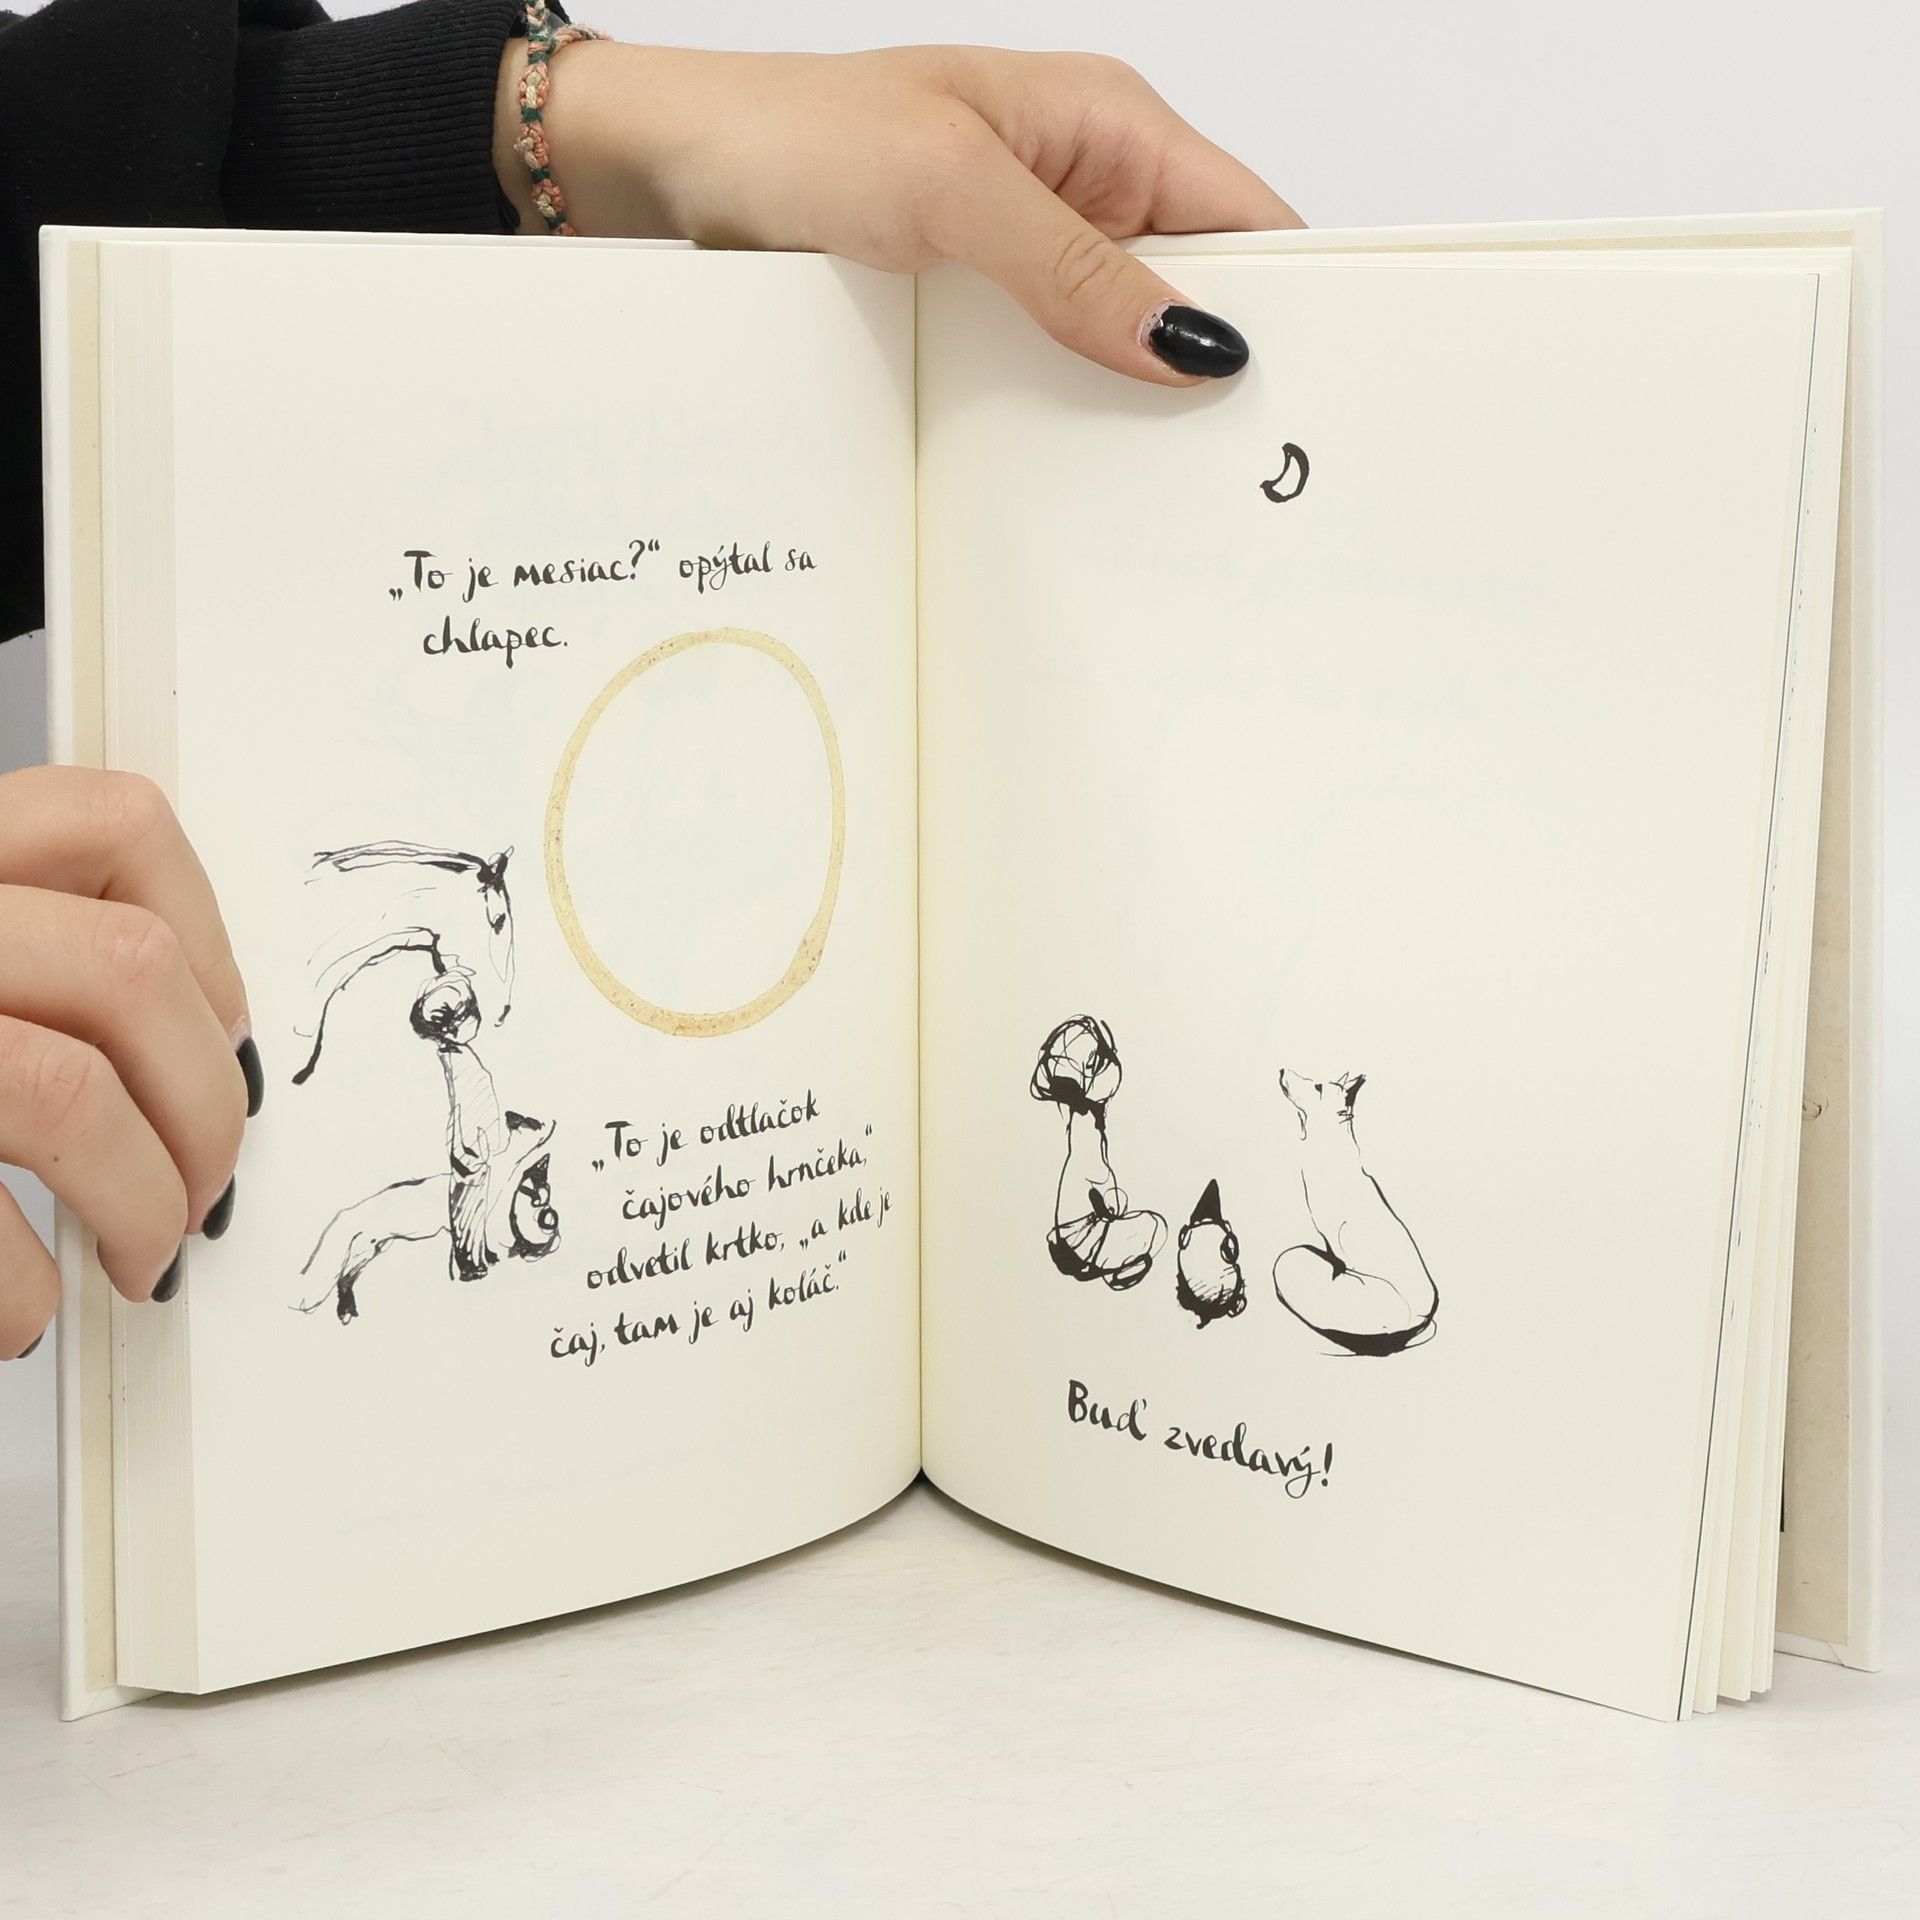 „To je mesiac?“ opýtal sa
chlapec.
„To je odtlačok
čajového hrnčeka,“
odvetil krtko, „a kde je
čaj, tam je aj koláč.“
Buď zvedavý!